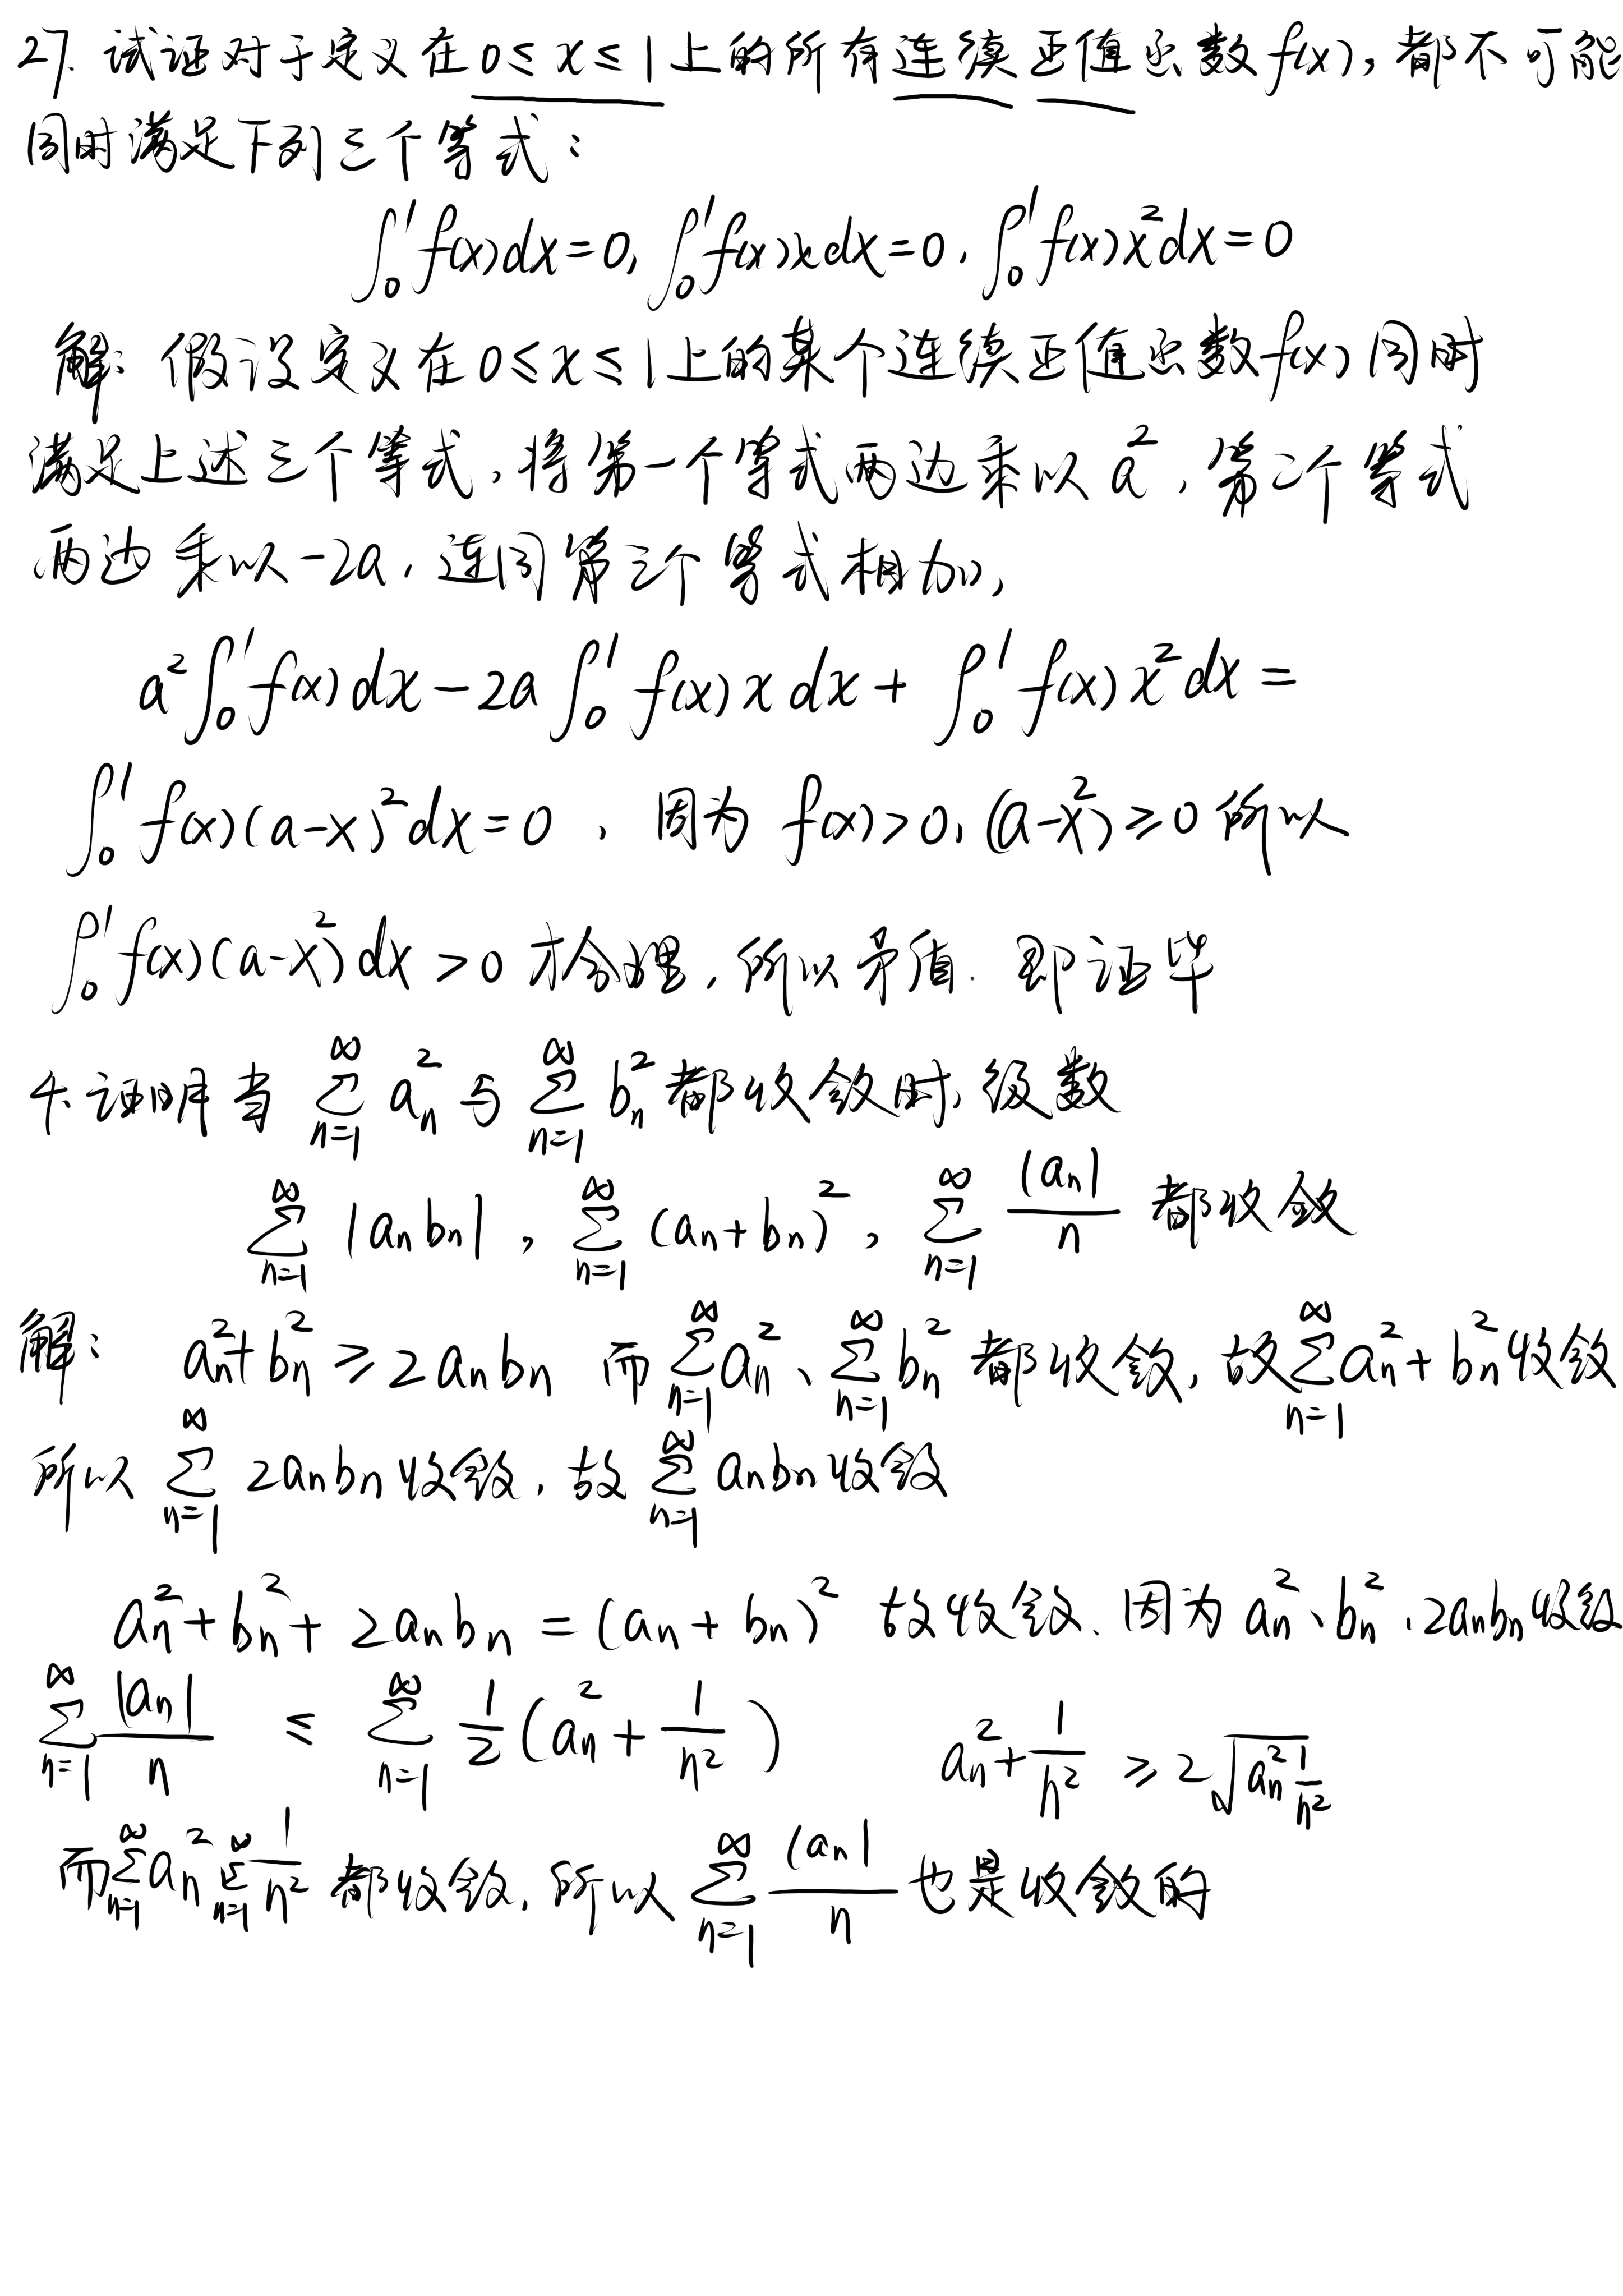 27. 试证对于定义在0≤x≤1上的所有连续正值函数f(x),都不可能
同时满足下列三个等式:
∫₀¹f(x)dx=0, ∫₀¹f(x)xdx=0, ∫₀¹f(x)x²dx=0
解:假设定义在0≤x≤1上的某个连续正值函数f(x)同时
满足上述三个等式,将第一个等式两边乘以a²,第二个等式
两边乘以-2a,连同第三个等式相加,
a²∫₀¹f(x)dx-2a∫₀¹f(x)xdx+∫₀¹f(x)x²dx=
∫₀¹f(x)(a-x)²dx=0,因为f(x)>0,(a-x)²≥0所以
∫₀¹f(x)(a-x)²dx>0才合理,所以矛盾.即证毕
4.证明当 ∑_{n=1}^∞ a_n² 与 ∑_{n=1}^∞ b_n² 都收敛时,级数
∑_{n=1}^∞ |a_n b_n|, ∑_{n=1}^∞ (a_n+b_n)², ∑_{n=1}^∞ |a_n|/n 都收敛
解: a_n²+b_n²≥2a_n b_n 而 ∑_{n=1}^∞ a_n²、∑_{n=1}^∞ b_n² 都收敛,故 ∑_{n=1}^∞ a_n²+b_n² 收敛
所以 ∑_{n=1}^∞ 2a_n b_n 收敛,故 ∑_{n=1}^∞ a_n b_n 收敛
a_n²+b_n²+2a_n b_n=(a_n+b_n)² 故收敛、因为 a_n²、b_n²、2a_n b_n 收敛
∑_{n=1}^∞ |a_n|/n ≤ ∑_{n=1}^∞ 1/2(a_n²+1/n²) a_n²+1/n²≥2√(a_n² 1/n²)
而 ∑_{n=1}^∞ a_n² ∑_{n=1}^∞ 1/n² 都收敛,所以 ∑_{n=1}^∞ |a_n|/n 也是收敛的